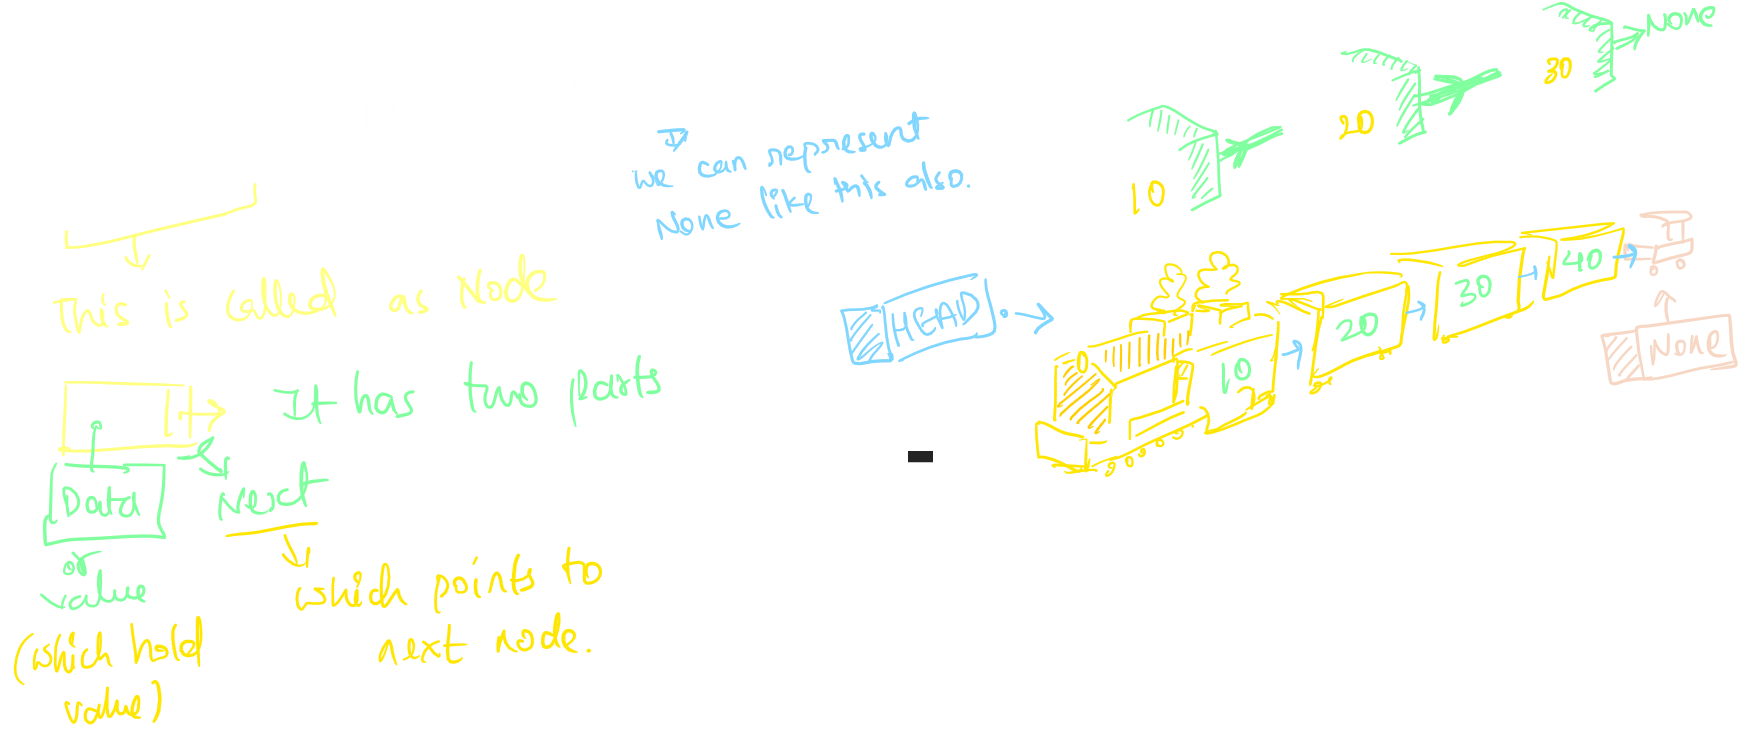 This is called as Node
It has two parts
Data
Next
or
value
(which hold
value)
which points to
next node.
we can represent
None like this also.
HEAD
10
20
30
None
10
20
30
40
None